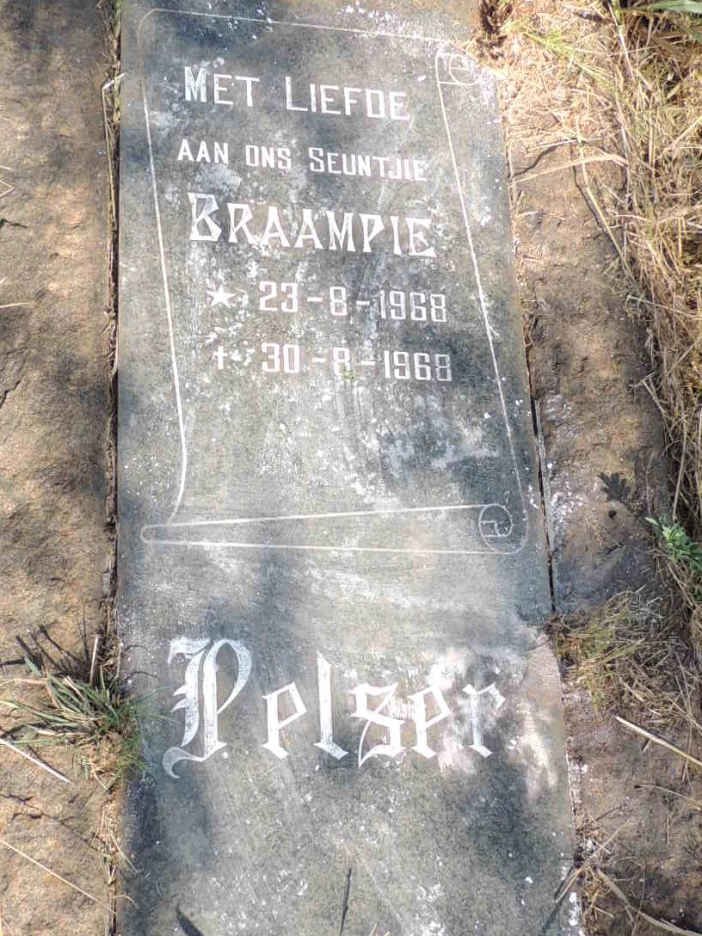 MET LIEFDE
AAN ONS SEUNTJIE
BRAAMPIE
★ 23-8-1968
† 30-8-1968
Pelser